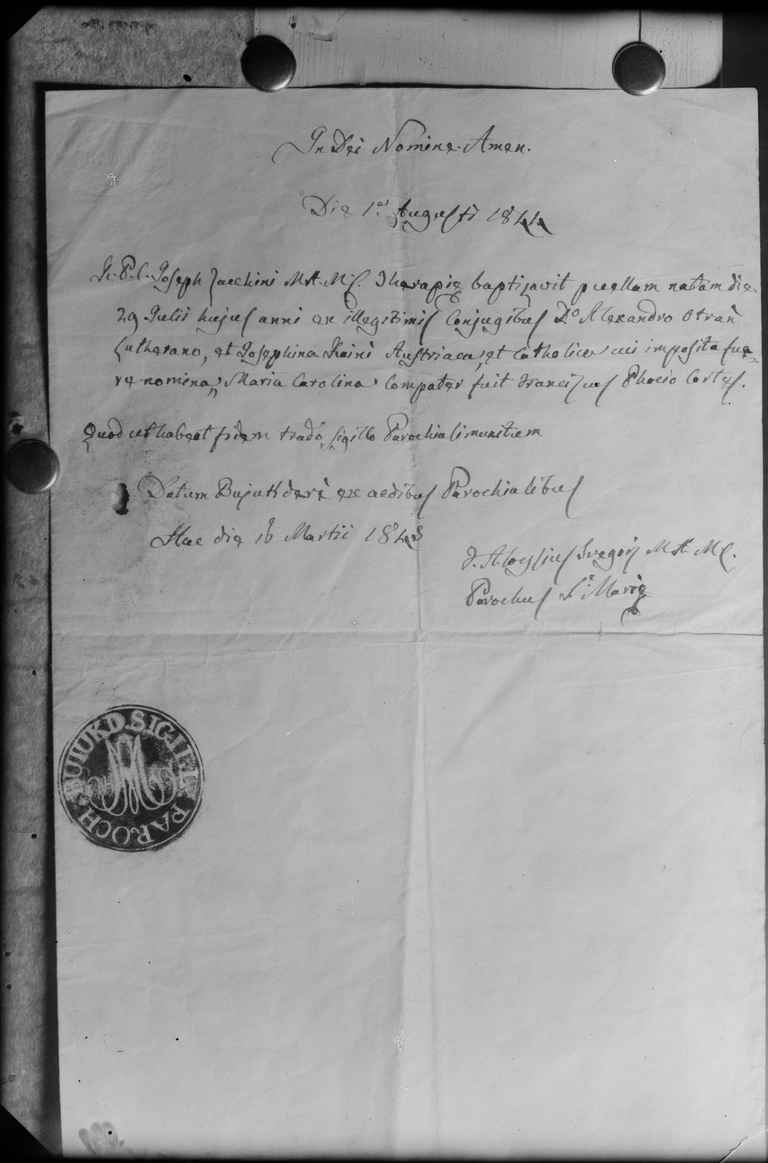 In Dei Nomine Amen.
Die 1.a Augusti 1844
P. C. Joseph Zucchini M.A.M.C. Therapiæ baptizavit puellam natam die
29 Julii hujus anni ex illegitimis Conjugibus D.o Alexandro
Lutherano, et Josephina Austriaca, et Catholica cui imposita fue-
re nomina, Maria Carolina. Compater fuit Franciscus Phocio
Quod ut habeat fidem trado, sigillo Parochiali munitum
Datum Bujukderè ex aedibus Parochialibus
Hac die 16 Martii 1848
F. Aloysius M.A.M.C.
Parochus S.æ Mariæ
BUIUKD. SIGILL. PAROCH.